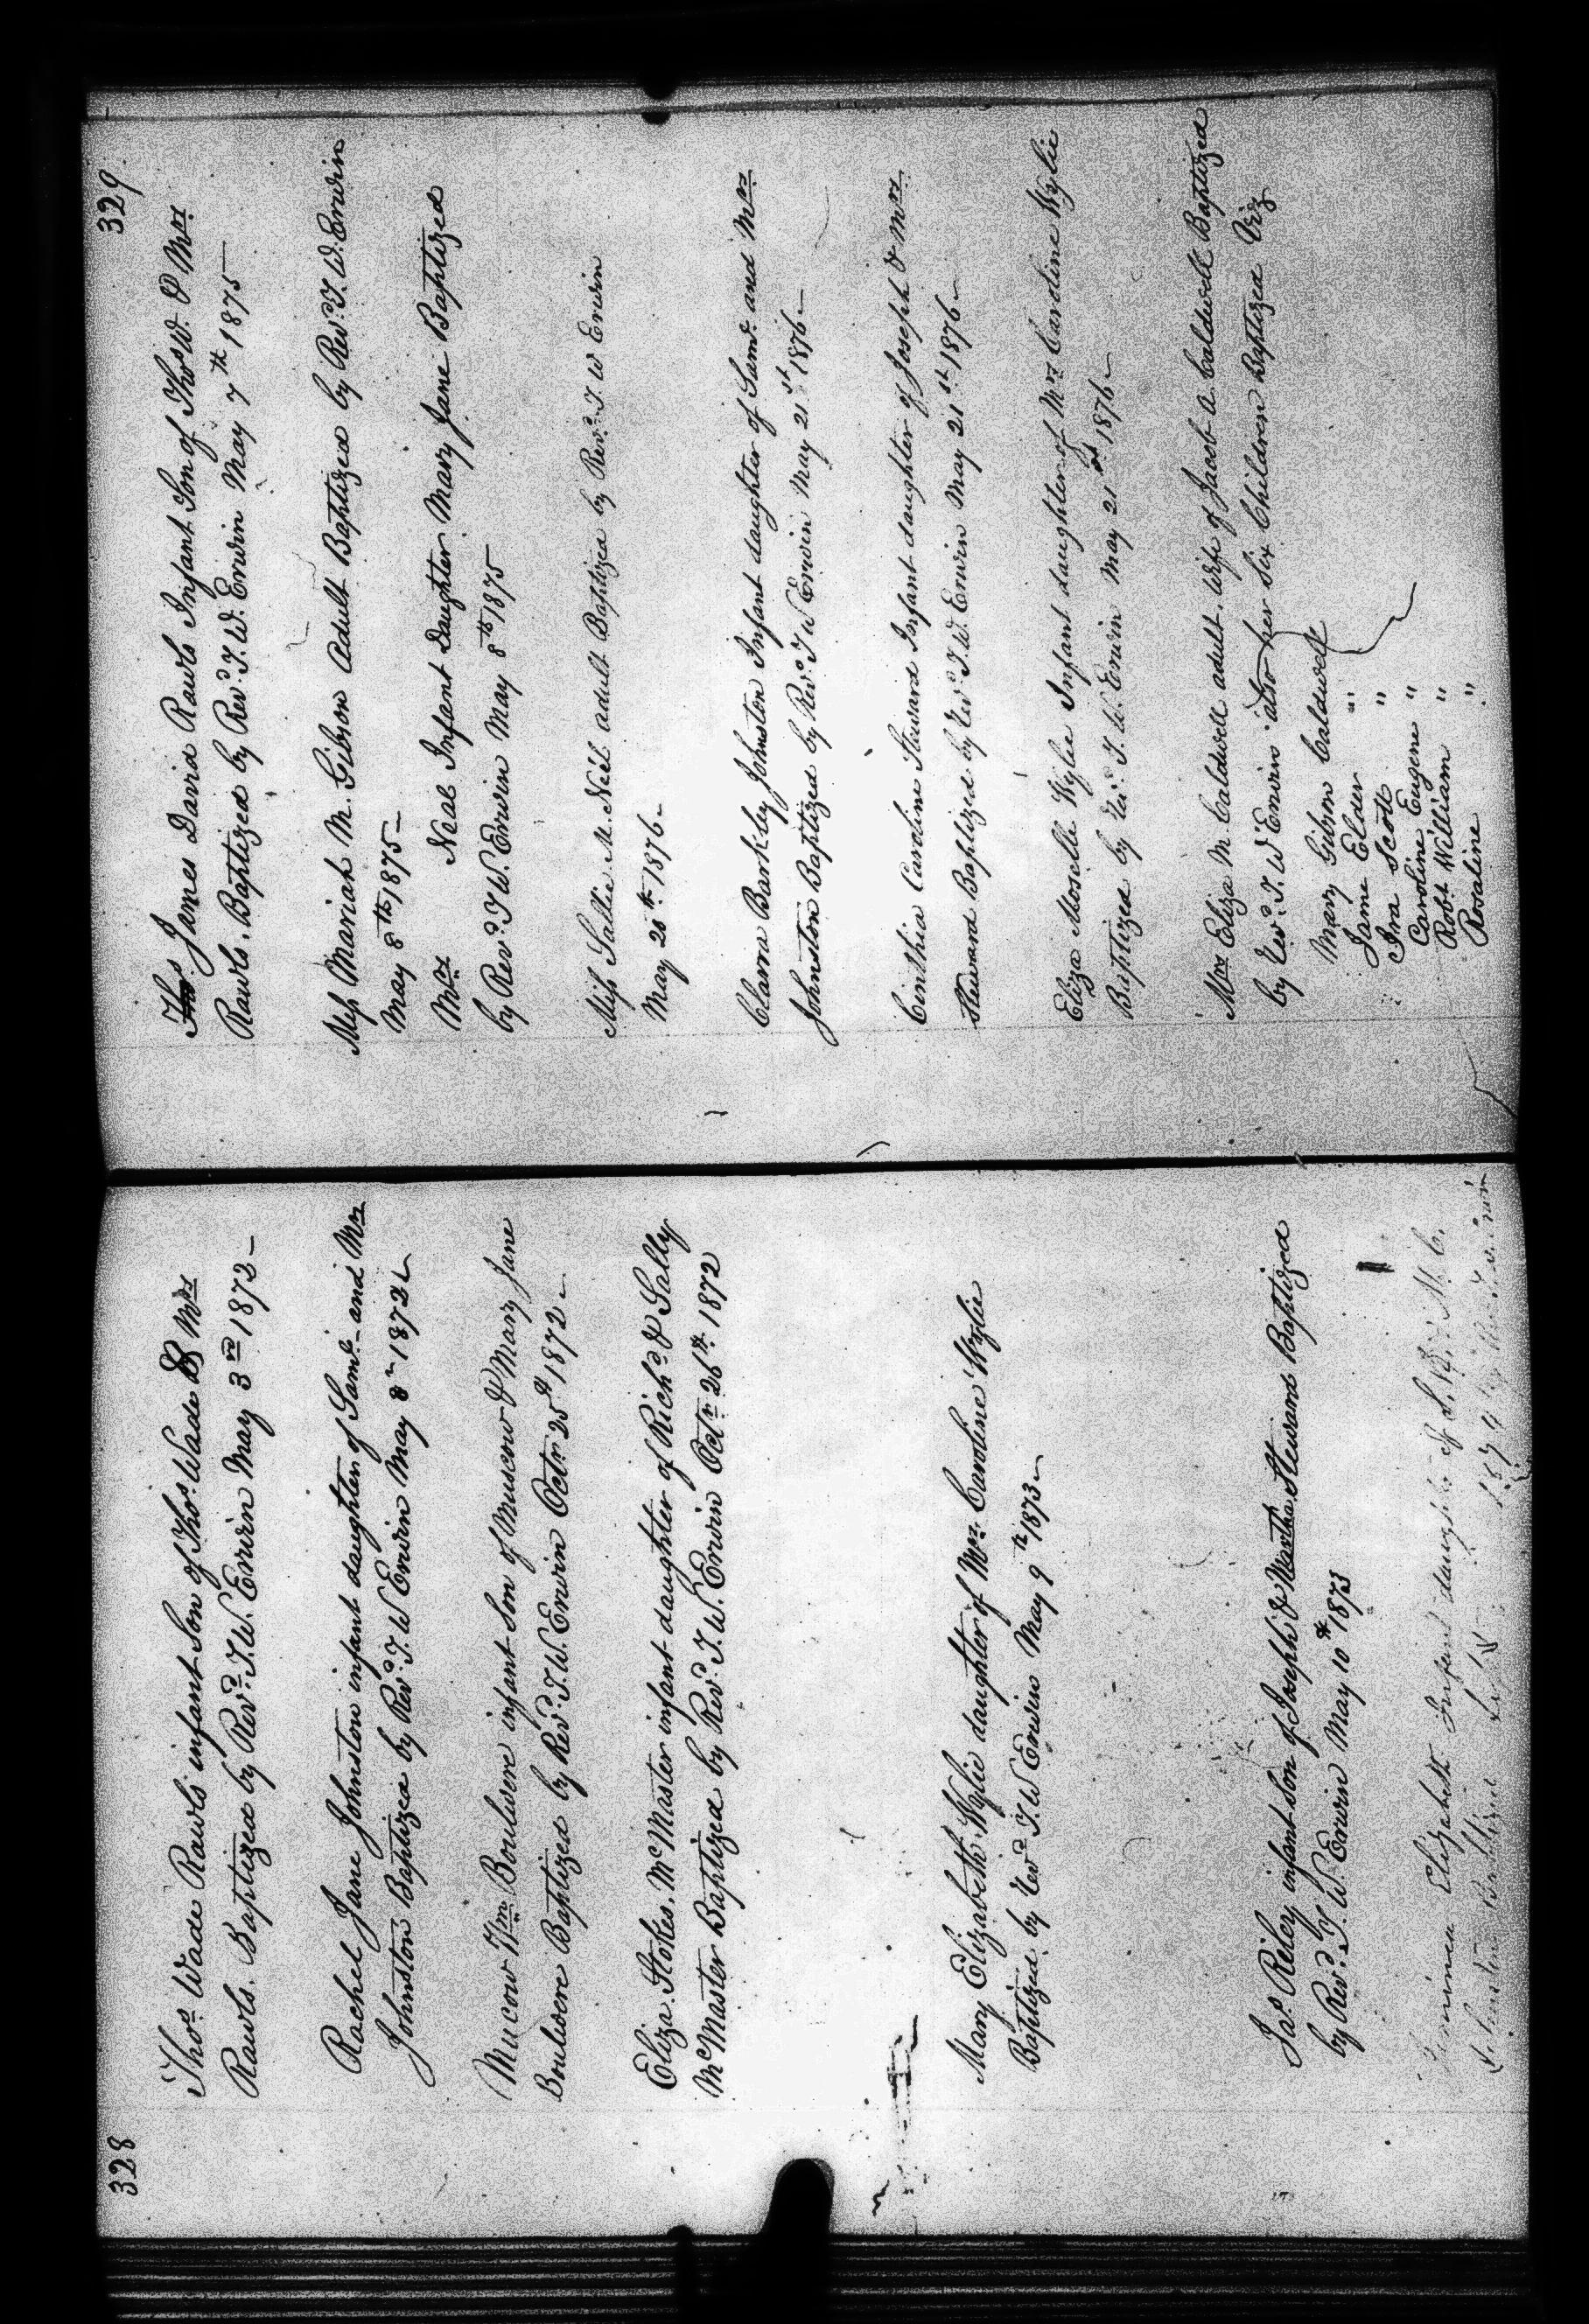 328
Thos. Wade Rawls infant Son of Thos. Wade & Mrs
Rawls. Baptized by Revd. T. W. Erwin May 3rd 1872
Rachel Jane Johnston infant daughter of Saml. and Mrs
Johnston Baptized by Revd. T. W Erwin May 8th 1872
Mucow Wm. Boulwere infant Son of Muscow & Mary Jane
Boulwere Baptized by Revd. T. W. Erwin Octr 25th 1872
Eliza Stokes. McMaster infant daughter of Richd. & Sally
McMaster Baptized by Revd. T. W. Erwin Octr. 26th. 1872
Mary Elizabeth Wylie daughter of Mrs. Caroline Wylie
Baptized by Revd T. W Erwin May 9th 1873
Jas. Riley infant Son of Joseph & Martha Steward Baptized
by Revd. T. W. Erwin May 10th 1873
Elizabeth Infant daughter of S.
Johnston Baptized 1874 by
329
Thos. James David Rawls Infant Son of Thos W. & Mrs
Rawls. Baptized by Revd. T. W. Erwin May 7th 1875
Miss Mariah M. Gibson Adult Baptized by Revd. T. W. Erwin
May 8th 1875
Mrs Neal Infant Daughter Mary Jane Baptized
by Revd T W. Erwin May 8th 1875
Miss Sallie M. Neil adult Baptized by Revd. T. W Erwin
May 20th. 1876
Clarra Barkley Johnston Infant daughter of Saml. and Mrs
Johnston Baptized by Revd. T W Erwin May 21st 1876
Cinthia Caroline Steward Infant daughter of Joseph & Mrs
Steward Baptized by Revd. T. W. Erwin May 21st. 1876
Eliza Moselle Wylie Infant daughter of Mrs Caroline Wylie
Baptized by Revd. T. W. Erwin May 21st 1876
Mrs Eliza M. Caldwell adult. Wife of Jacob A. Caldwell Baptized
by Revd. T. W Erwin also her Six Children Baptized Viz
Mary Gibson Caldwell
Jame Elder "
Ira Scott "
Caroline Eugene "
Robt William "
Rosaline "